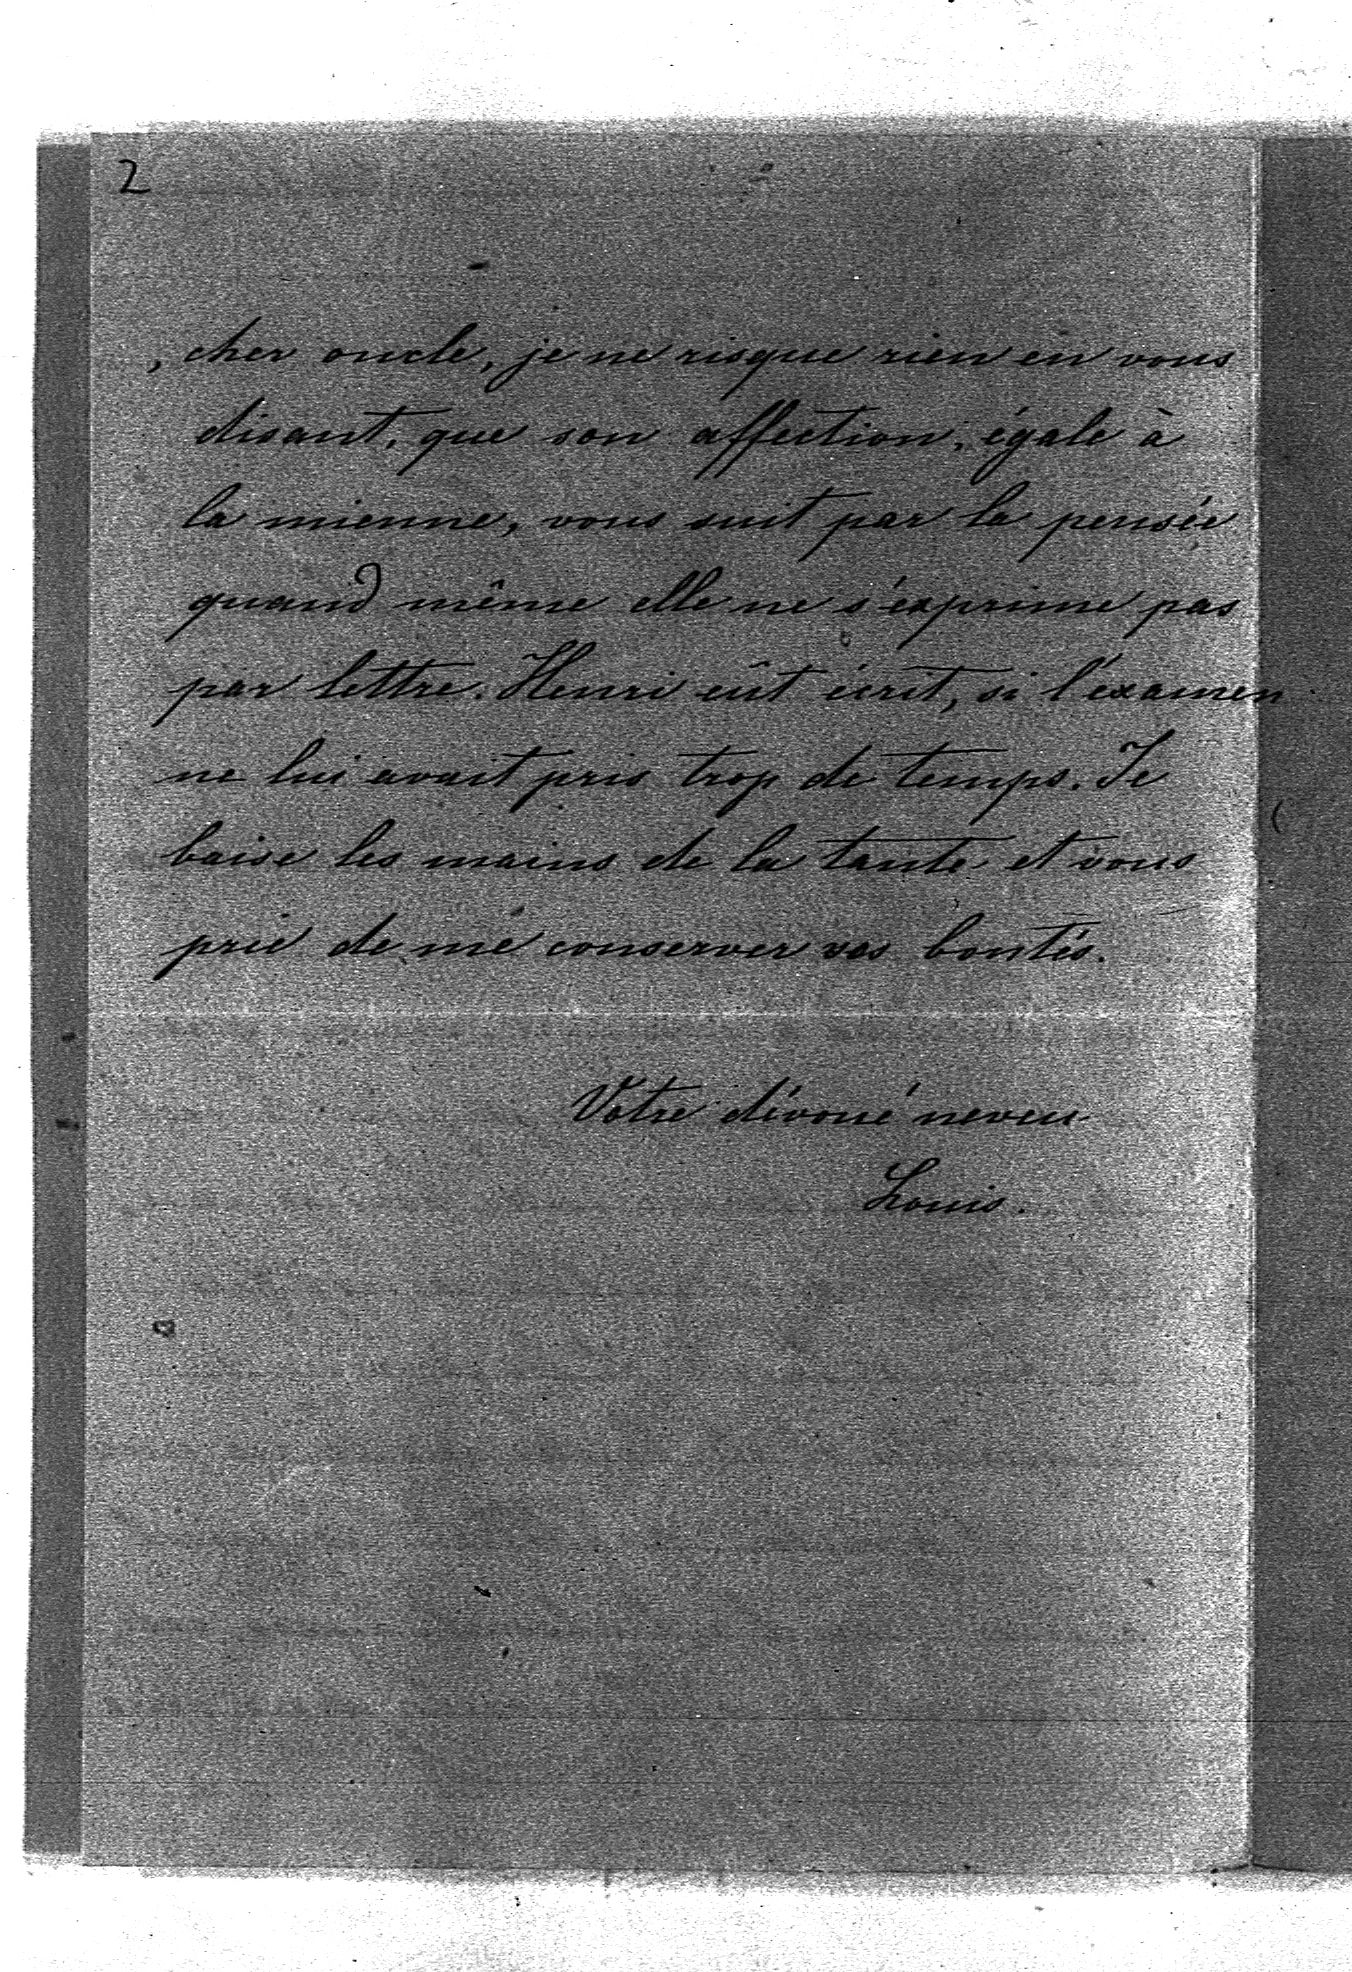 2
, cher oncle, je ne risque rien en vous
disant, que son affection, égale à
la mienne, vous suit par la pensée
quand même elle ne s'exprime pas
par lettre. Henri eût écrit, si l'examen
ne lui avait pris trop de temps. Je
baise les mains de la tante et vous
prie de me conserver vos bontés.
Votre dévoué neveu
Louis.